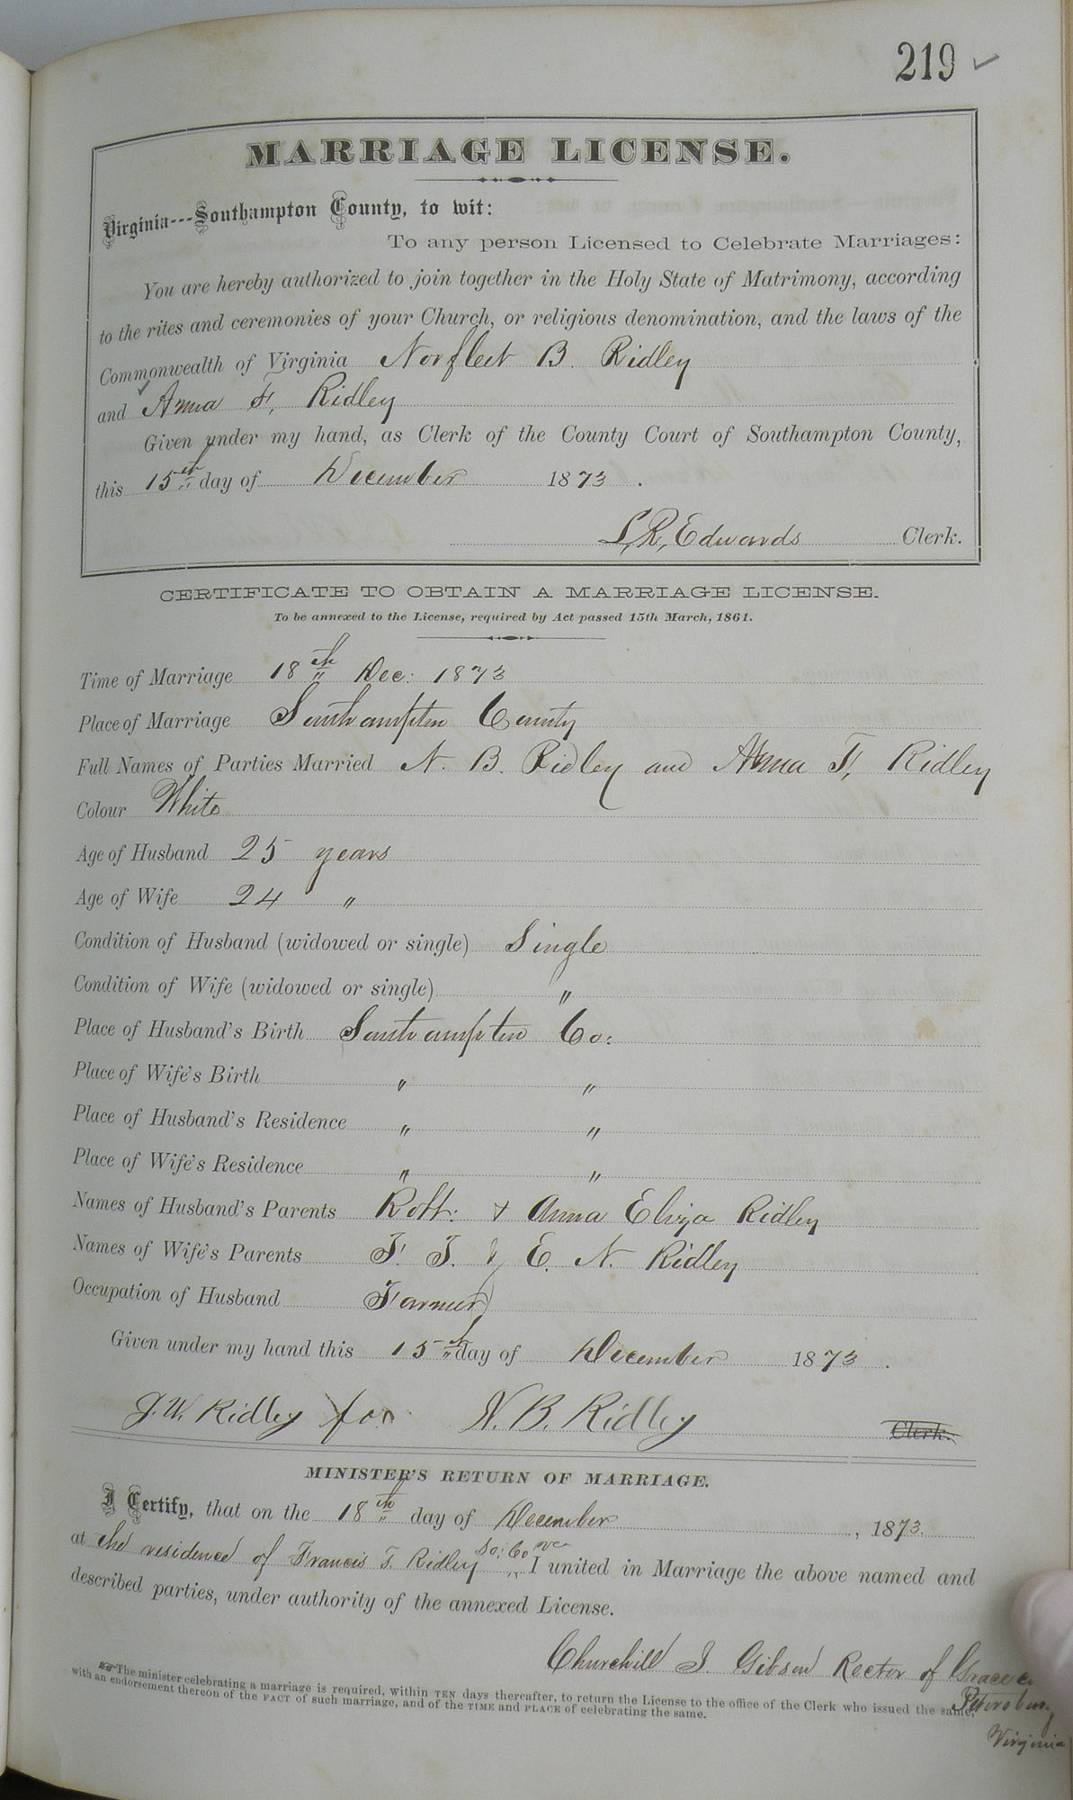 219 ✓
MARRIAGE LICENSE.
Virginia---Southampton County, to wit:
To any person Licensed to Celebrate Marriages:
You are hereby authorized to join together in the Holy State of Matrimony, according
to the rites and ceremonies of your Church, or religious denomination, and the laws of the
Commonwealth of Virginia Norfleet B. Ridley
and Anna F. Ridley
Given under my hand, as Clerk of the County Court of Southampton County,
this 15th day of December 1873.
L, R, Edwards Clerk.
CERTIFICATE TO OBTAIN A MARRIAGE LICENSE.
To be annexed to the License, required by Act passed 15th March, 1861.
Time of Marriage 18th Dec: 1873
Place of Marriage Southampton County
Full Names of Parties Married N. B. Ridley and Anna F, Ridley
Colour White
Age of Husband 25 years
Age of Wife 24 "
Condition of Husband (widowed or single) Single
Condition of Wife (widowed or single) "
Place of Husband's Birth Southampton Co:
Place of Wife's Birth " "
Place of Husband's Residence " "
Place of Wife's Residence " "
Names of Husband's Parents Robt: & Anna Eliza Ridley
Names of Wife's Parents F. T. & E. N. Ridley
Occupation of Husband Farmer
Given under my hand this 15th day of December 1873.
J. W. Ridley for N. B. Ridley Clerk.
MINISTER'S RETURN OF MARRIAGE.
I Certify, that on the 18th day of December, 1873.
at the residence of Francis T. Ridley So: Co I united in Marriage the above named and
described parties, under authority of the annexed License.
Churchill J. Gibson Rector of Grace
Petersburg
Virginia
The minister celebrating a marriage is required, within TEN days thereafter, to return the License to the office of the Clerk who issued the same,
with an endorsement thereon of the FACT of such marriage, and of the TIME and PLACE of celebrating the same.